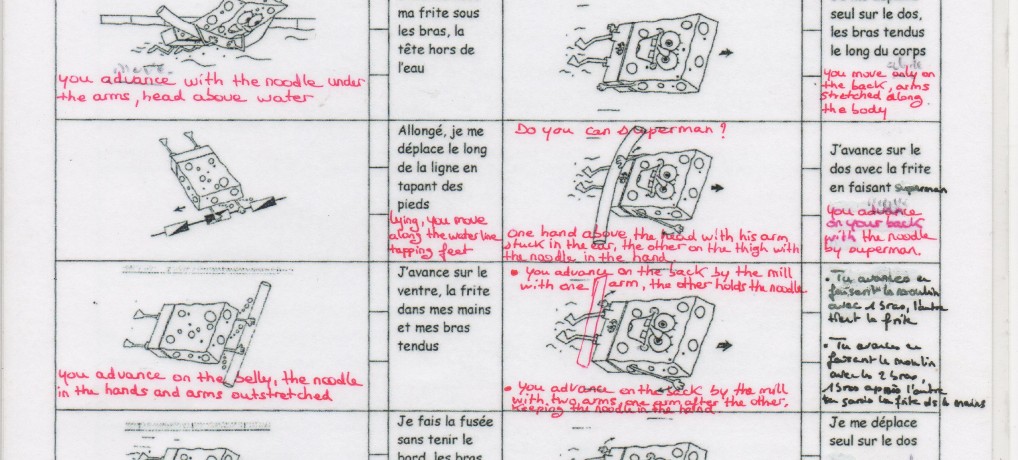 ma frite sous
les bras, la
tête hors de
l'eau
you advance with the noodle under
the arms, head above water
seul sur le dos,
les bras tendus
le long du corps
you move only on
the back, arms
stretched along
the body
Allongé, je me
déplace le long
de la ligne en
tapant des
pieds
lying, you move
along the waterline
tapping feet
Do you can superman?
one hand above the head with his arm
stuck in the ear, the other on the thigh with
the noodle in the hand.
J'avance sur le
dos avec la frite
en faisant superman
you advance
on your back
with the noodle
by superman.
you advance on the belly, the noodle
in the hands and arms outstretched
J'avance sur le
ventre, la frite
dans mes mains
et mes bras
tendus
• you advance on the back by the mill
with one arm, the other holds the noodle
• you advance on the back by the mill
with two arms, one arm after the other,
keeping the noodle in the hand.
• Tu avances en
faisant le moulin
avec 1 bras, l'autre
tient la frite
• Tu avances en
faisant le moulin
avec les 2 bras,
1 bras après l'autre
tu gardes la frite ds les mains
Je fais la fusée
sans tenir le
bord, les bras
Je me déplace
seul sur le dos